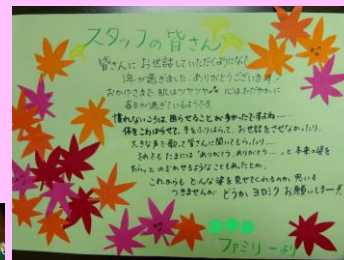 スタッフの皆さん
皆さんに お世話していただくようになって
1年が過ぎました ありがとうございます!
おかげさまで 肌はツヤツヤ 心はおだやかに
毎日が過ぎているようです
慣れないころは 困らせることが多かったですよね…
体をこわばらせて、手をふりはらって、お世話をさせなかったり、
大きな声で歌って皆さんに聞いてもらったり…
それでも たまには「ありがとう、ありがとう…」と 本来の姿を
ちらっと のぞかせるようなこともあったとか。
これからも どんな姿を見せてくれるのか 思いは
つきませんが どうか ヨロシク お願いしまーす
ファミリーより